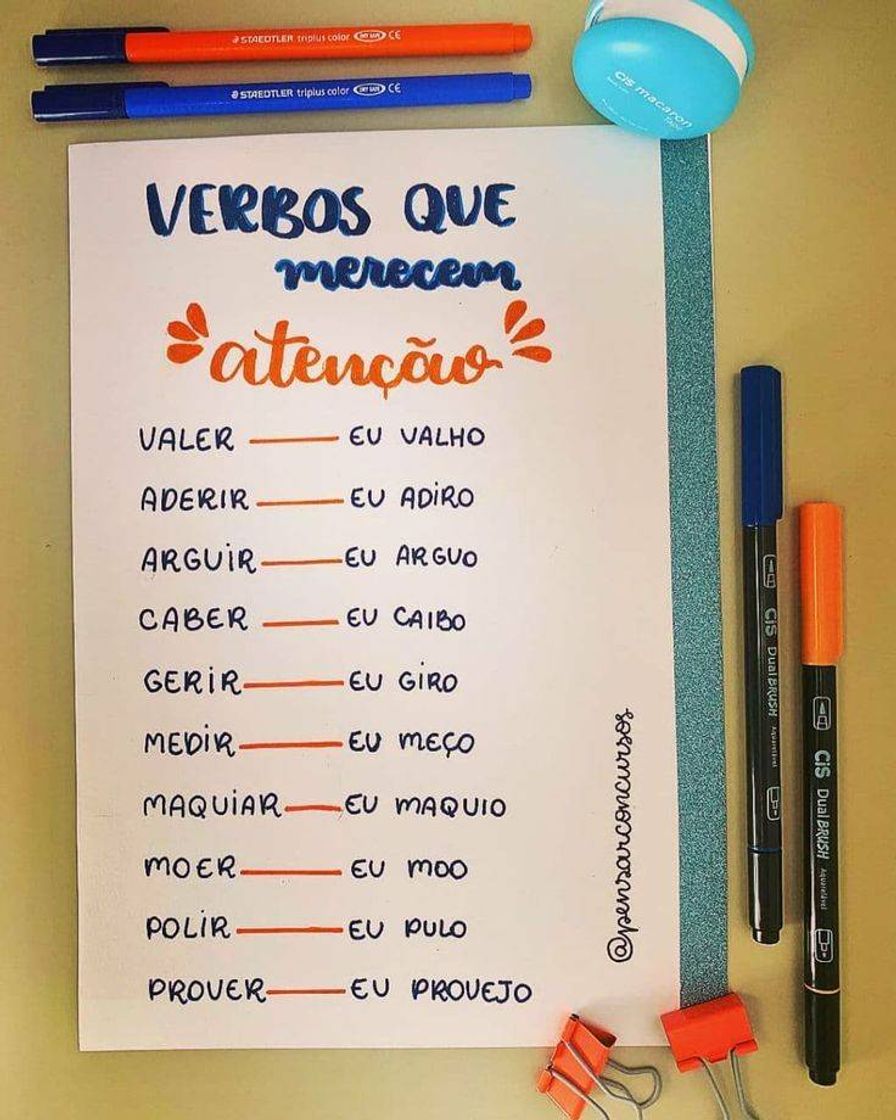 STAEDTLER triplus color DRY SAFE CE
STAEDTLER triplus color DRY SAFE CE
CiS macaron
Tape
VERBOS QUE
merecem
atenção
VALER EU VALHO
ADERIR EU ADIRO
ARGUIR EU ARGUO
CABER EU CAIBO
GERIR EU GIRO
MEDIR EU MEÇO
MAQUIAR EU MAQUIO
MOER EU MOO
POLIR EU PULO
PROVER EU PROVEJO
@pensarconcursos
CiS DualBRUSH Aquarelável
CiS DualBRUSH Aquarelável